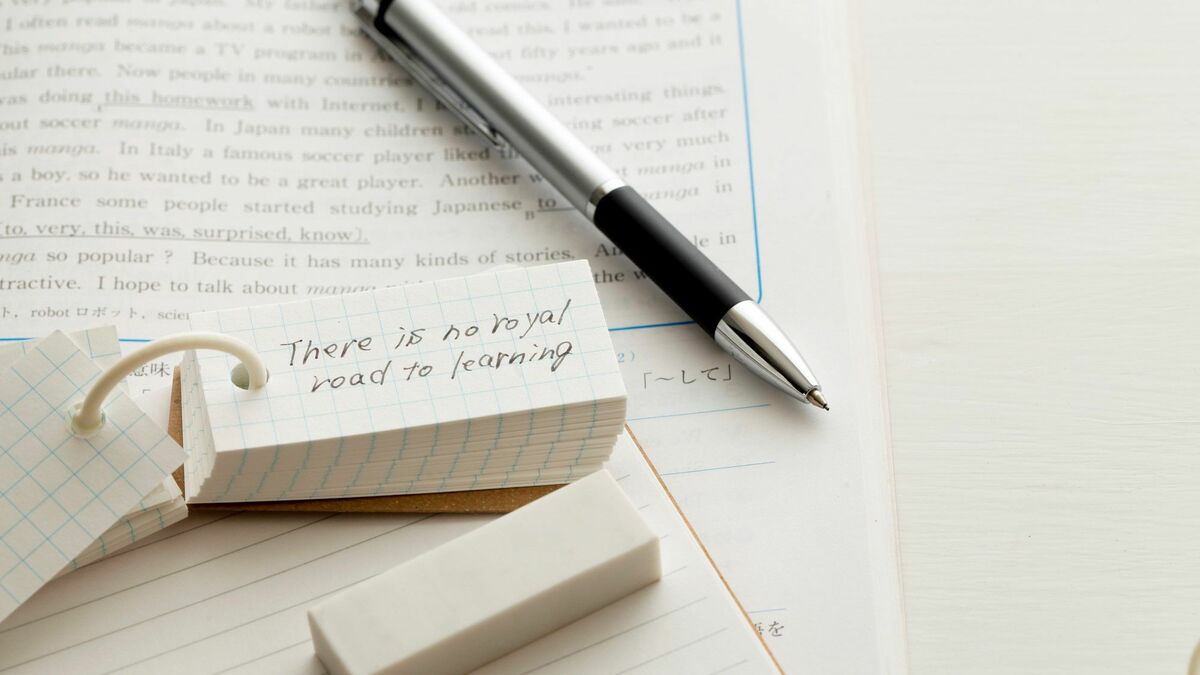 I often read manga about a robot read this, I wanted to be a
This manga became a TV program in fifty years ago and it
there. Now people in many countries manga."
was doing this homework with Internet, I interesting things.
soccer manga. In Japan many children soccer after
manga. In Italy a famous soccer player liked manga very much
a boy, so he wanted to be a great player. Another manga in
France some people started studying Japanese B to manga in
to, very, this, was, surprised, know).
so popular? Because it has many kinds of stories. in
I hope to talk about manga the
ト, robot ロボット,
There is no royal
road to learning
意味
2)
「~して」
語を